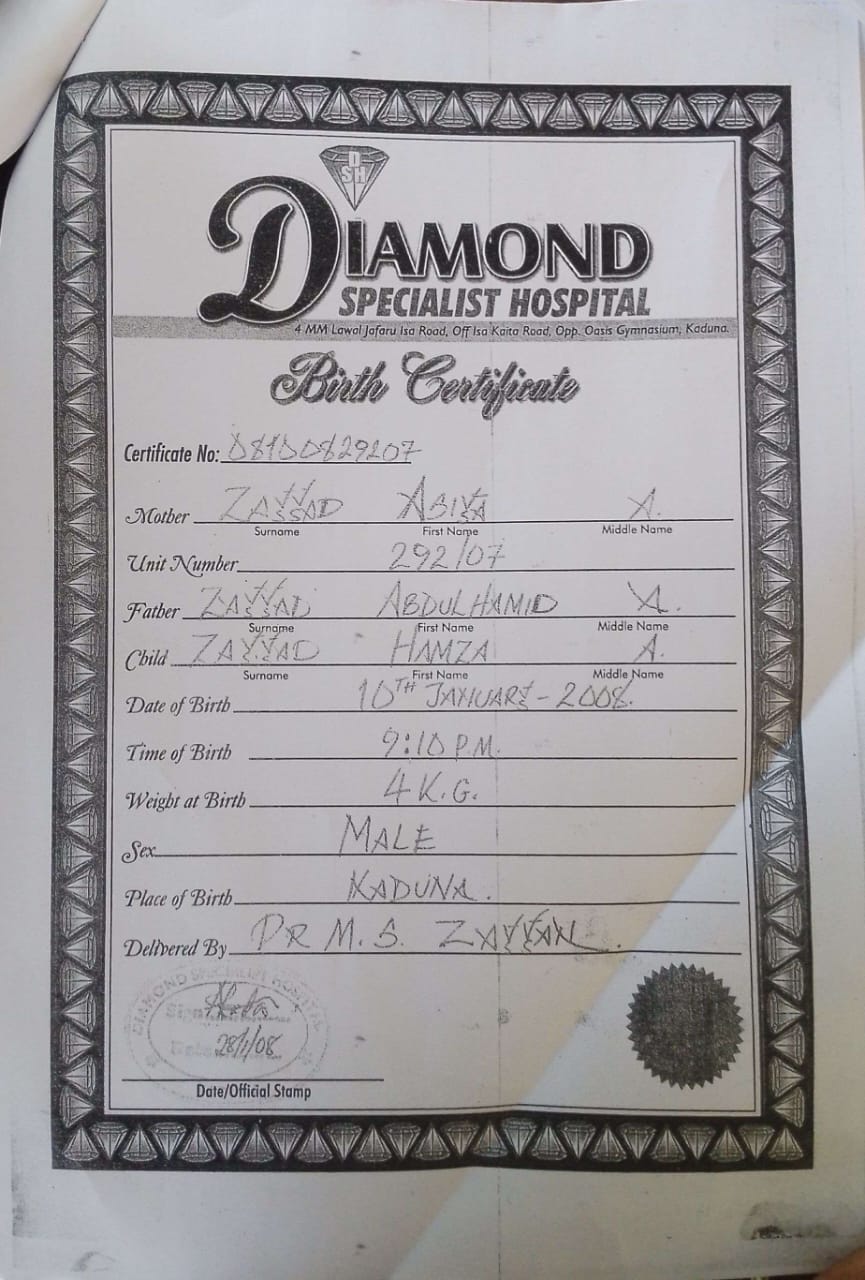 DSH
DIAMOND
SPECIALIST HOSPITAL
4 MM Lawal Jafaru Isa Road, Off Isa Kaita Road, Opp. Oasis Gymnasium, Kaduna.
Birth Certificate
Certificate No:
Mother ZAYYAD A.
Surname First Name Middle Name
Unit Number 292/07
Father ZAYYAD ABDULHAMID A.
Surname First Name Middle Name
Child ZAYYAD HAMZA A.
Surname First Name Middle Name
Date of Birth 10TH JANUARY - 2008.
Time of Birth 9:10 P.M.
Weight at Birth 4 K.G.
Sex MALE
Place of Birth KADUNA.
Delivered By DR M. S. ZAYYAN.
DIAMOND SPECIALIST HOSPITAL
Sign
Date 28/1/08
Date/Official Stamp